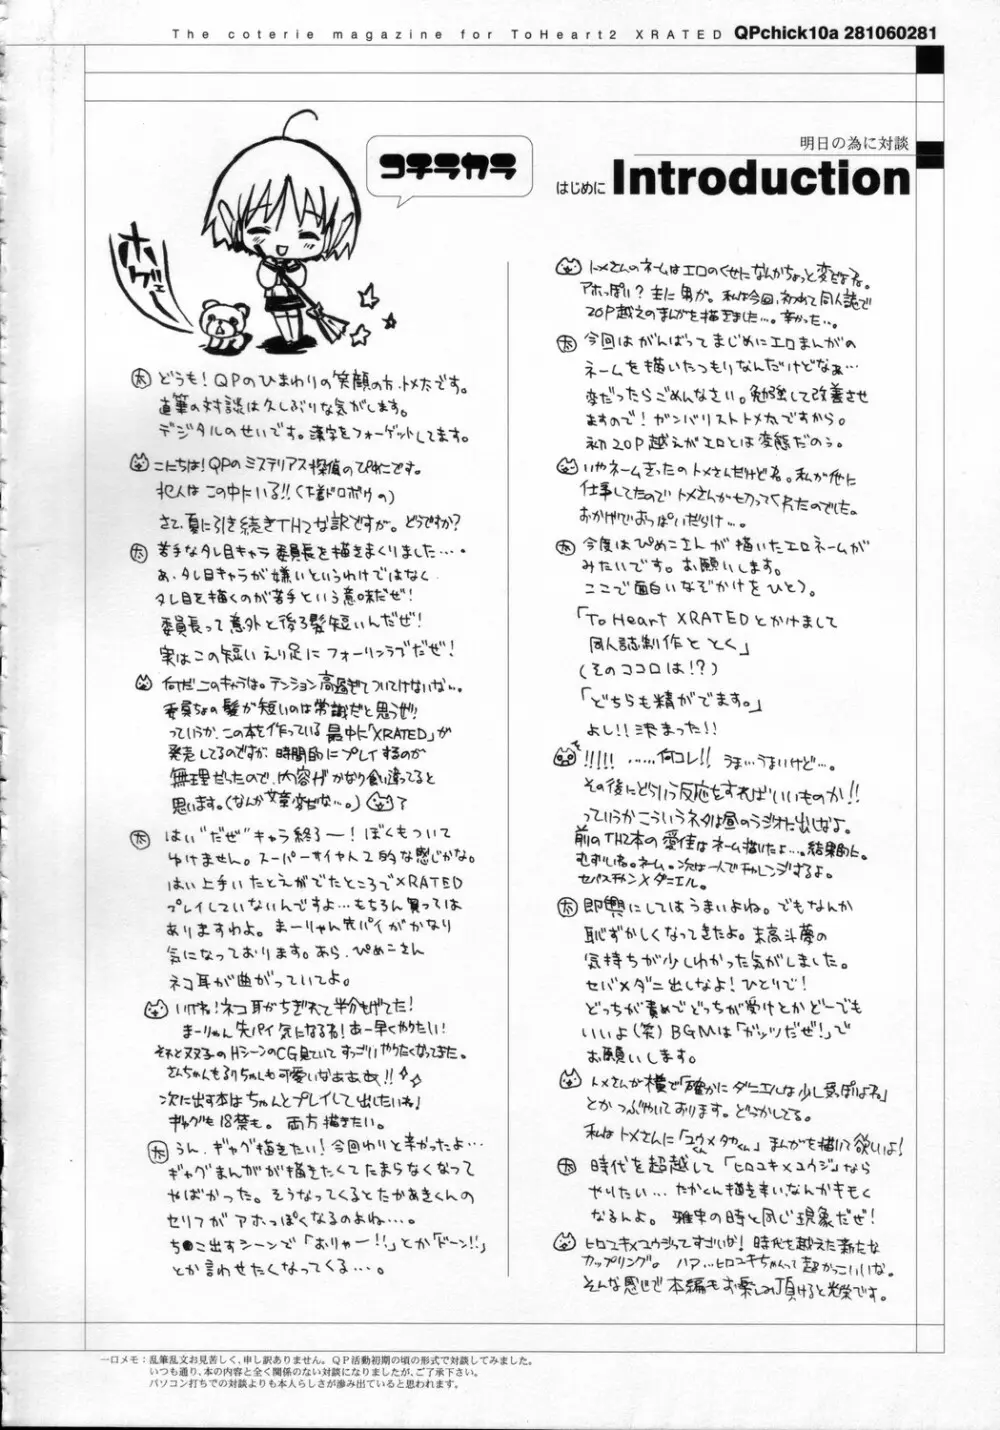 The coterie magazine for ToHeart2 XRATED QPchick10a 281060281
明日の為に対談
はじめに Introduction
コチラカラ
ホゲェ
太 どうも!QPのひまわりの笑顔の方、トメ太です。
直筆の対談は久しぶりな気がします。
デジタルのせいです。漢字をフォーゲットしてます。
こにちは!QPのミステリアス探偵のぴめこです。
犯人はこの中にいる!!(下着ドロボウの)
さて、夏に引き続きTH2な訳ですが。どうですか?
太 苦手なタレ目キャラ委員長を描きまくりました…。
あ、タレ目キャラが嫌いというわけではなく
タレ目を描くのが苦手という意味だぜ!
委員長って意外と後ろ髪短いんだぜ!
実はこの短いえり足にフォーリンラブだぜ!
何だこのキャラは。テンション高過ぎてついてけないな…。
委員ちょの髪が短いのは常識だと思うぜ!!
っていうか、この本を作っている最中に「XRATED」が
発売してるのですが、時間的にプレイするのが
無理だったので、内容がかなり食い違ってると
思います。(なんか文章変だな…。)
太 はい"だぜ"キャラ終了ー!ぼくもついて
ゆけません。スーパーサイヤ人2的な感じかな。
はい上手いたとえがでたところでXRATED
プレイしていないんですよ…もちろん買っては
ありますわよ。まーりゃん先パイがかなり
気になっております。あら、ぴめこさん
ネコ耳が曲がっていてよ。
いけね!ネコ耳がちぎれて半分もげてた!
まーりゃん先パイ気になるね!あー早くやりたい!
それと双子のHシーンのCG見ていてすっごいやりたくなってきた。
さんちゃんもるりちゃんも可愛いなぁぁぁぁ!!
次に出す本はちゃんとプレイして出したいね!
ギャグも18禁も。両方描きたい。
太 うん、ギャグ描きたい!今回わりと辛かったよ…
ギャグまんがが描きたくてたまらなくなって
やばかった。そうなってくるとたかあきくんの
セリフがアホっぽくなるのよね…。
ち●こ出すシーンで「おりゃー!!」とか「ドーン!!」
とか言わせたくなってくる…。
トメさんのネームはエロのくせになんかちょっと変だよね。
アホっぽい?主に男が。私は今回、初めて同人誌で
20P越えのまんがを描きました…。辛かった…。
太 今回はがんばってまじめにエロまんがの
ネームを描いたつもりなんだけどなぁ…
変だったらごめんなさい。勉強して改善させ
ますので!ガンバリストトメ太ですから。
初20P越えがエロとは変態だのぅ。
いやネームきったのトメさんだけどね。私が他に
仕事してたのでトメさんが切ってくれたのでした。
おかげでおっぱいだらけ…。
太 今度はぴめこさんが描いたエロネームが
みたいです。お願いします。
ここで面白いなぞかけをひとつ。
「To Heart XRATEDとかけまして
同人誌制作ととく」
(そのココロは!?)
「どちらも精がでます。」
よし!!決まった!!
!!!!!……何コレ!!うま…うまいけど…。
その後にどういう反応をすればいいものか!!
っていうかこういうネタは昼のラジオに出しなよ。
前のTH2本の愛佳はネーム描けたよ…。結果的に。
むずいね。ネーム。次は一人でチャレンジするよ。
セバスチャン×ダニエル。
太 即興にしてはうまいよね。でもなんか
恥ずかしくなってきたよ。末高斗夢の
気持ちが少しわかった気がしました。
セバ×ダニ出しなよ!ひとりで!
どっちが責めでどっちが受けとかどーでも
いいよ(笑)BGMは「ガッツだぜ!」で
お願いします。
トメさんが横で「確かにダニエルは少し受っぽいよね」
とかつぶやいております。どうかしてる。
私はトメさんに「ユウくん×タカくん」まんがを描いて欲しいよ!
太 時代を超越して「ヒロユキ×ユウジ」なら
やりたい…たかくん描き辛い、なんかキモく
なるんよ。雅史の時と同じ現象だぜ!
ヒロユキ×ユウジってすごいな!時代を越えた新たな
カップリング。ハァ…ヒロユキちゃんって超かっこいいな。
そんな感じで本編もお楽しみ頂けると光栄です。
一口メモ:乱筆乱文お見苦しく、申し訳ありません。QP活動初期の頃の形式で対談してみました。
いつも通り、本の内容と全く関係のない対談になりましたが、ご了承下さい。
パソコン打ちでの対談よりも本人らしさが滲み出ていると思われます。